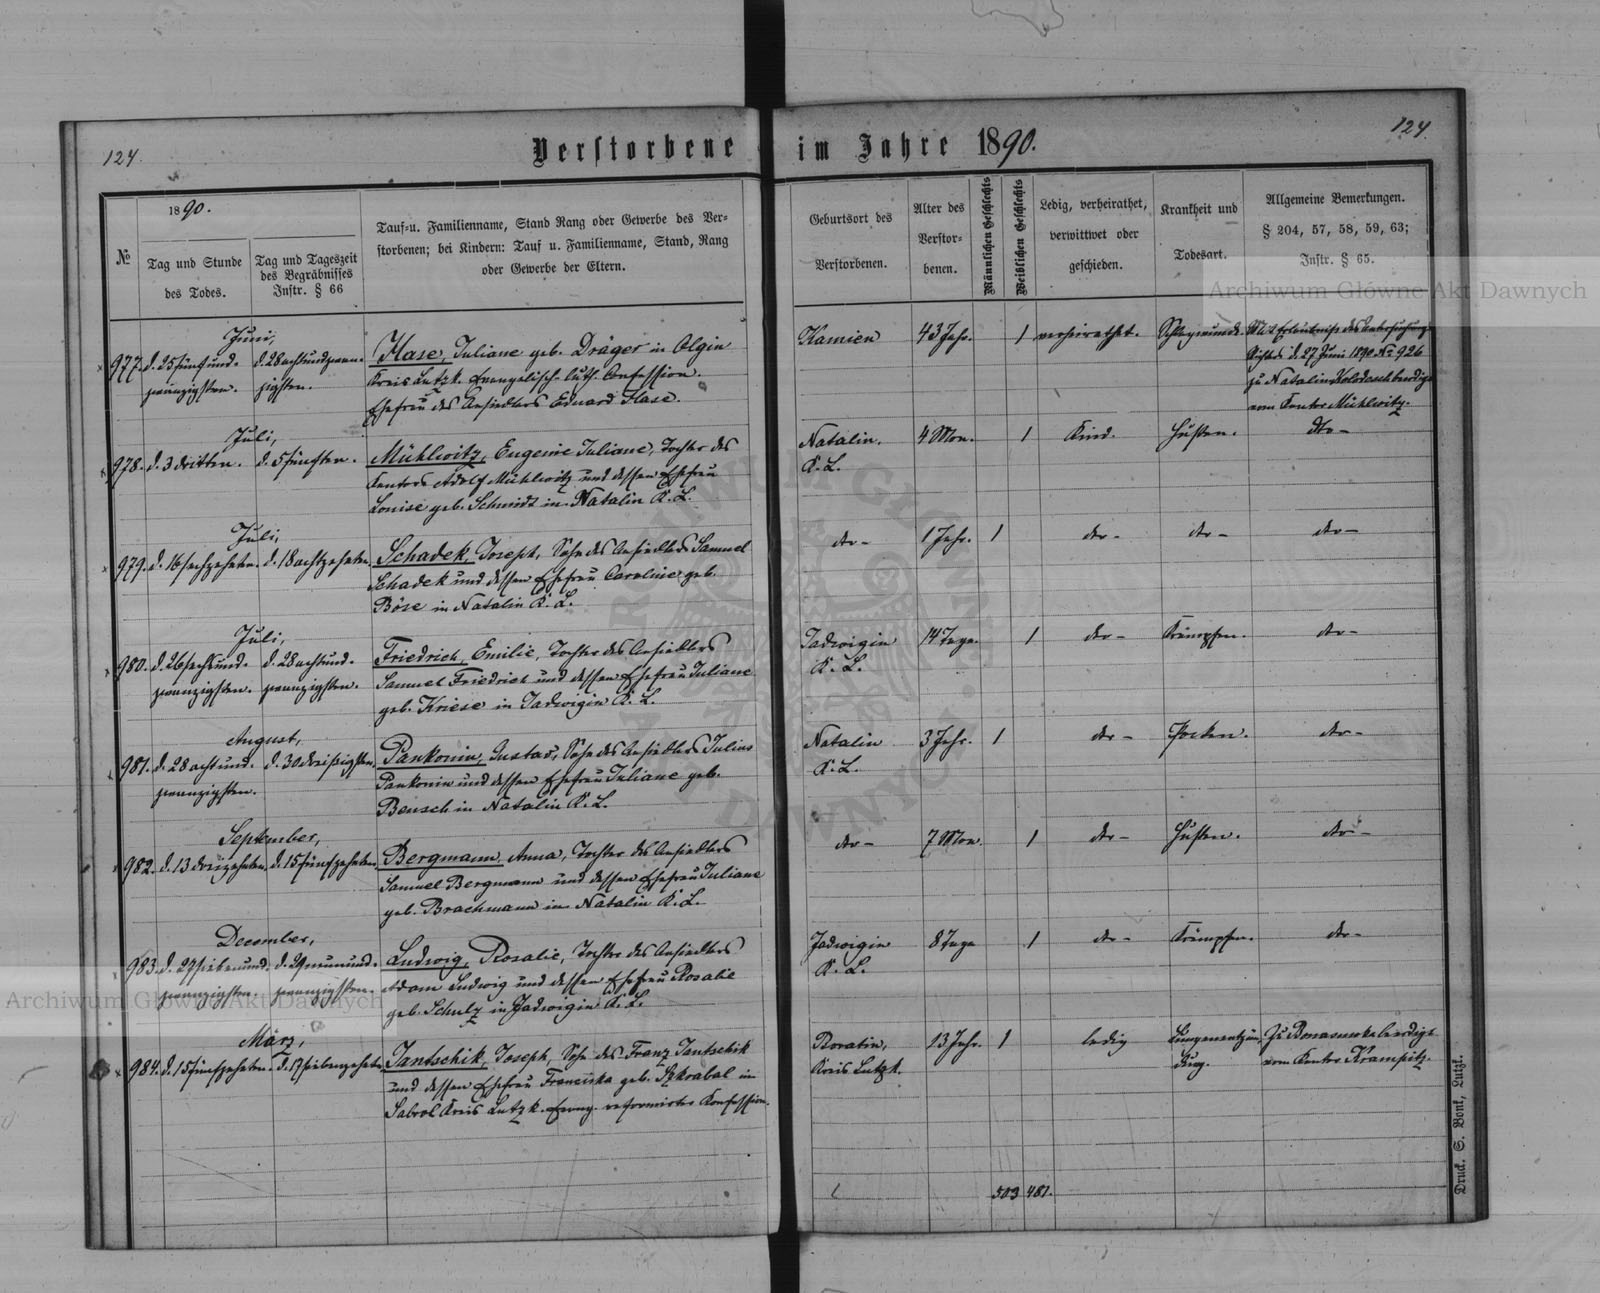 124.
Verstorbene im Jahre 1890.
124.
№
1890.
Tag und Stunde
des Todes.
Tag und Tageszeit
des Begräbnisses
Instr. § 66
Tauf- u. Familienname, Stand Rang oder Gewerbe des Ver-
storbenen; bei Kindern: Tauf u. Familienname, Stand, Rang
oder Gewerbe der Eltern.
Geburtsort des
Verstorbenen.
Alter des
Verstor-
benen.
Männlichen Geschlechts
Weiblichen Geschlechts
Ledig, verheirathet,
verwittwet oder
geschieden.
Krankheit und
Todesart.
Allgemeine Bemerkungen.
§ 204, 57, 58, 59, 63;
Instr. § 65.
Archiwum Główne Akt Dawnych
Juni,
977. d. 25 fünf und- d. 28 achtundzwan-
zwanzigsten. zigsten.
Hase, Juliane geb. Dräger in Olgin
Kreis Lutzk. Evangelisch-luth. Confession.
Ehefrau des Ansiedlers Eduard Hase.
Kamien 43 Jahr. 1 verheirathet.
Mit Erlaubniss des Untersuchung
Richters d. 27 Juni 1890 № 926
zu Natalin beerdigt
vom Kantor Mühlwitz.
Juli,
978. d. 3 dritten. d. 5 fünften.
Mühlwitz, Eugenie Juliane, Tochter des
Kantors Adolf Mühlwitz und dessen Ehefrau
Louise geb. Schmidt in Natalin K. L.
Natalin. 4 Mon. 1 Kind. Husten. dto-
K. L.
Juli,
979. d. 16 sechzehnten. d. 18 achtzehnten.
Schadek, Joseph, Sohn des Ansiedlers Samuel
Schadek und dessen Ehefrau Caroline geb.
Böse in Natalin K. L.
dto- 1 Jahr. 1 dto- dto- dto-
Juli,
980. d. 26 sechsund- d. 28 achtund-
zwanzigsten. zwanzigsten.
Friedrich, Emilie, Tochter des Ansiedlers
Samuel Friedrich und dessen Ehefrau Juliane
geb. Kriese in Jadwigin K. L.
Jadwigin 14 Tage. 1 dto- Krämpfen. dto-
K. L.
August,
981. d. 28 achtund- d. 30 dreißigsten.
zwanzigsten.
Pankonin, Gustav, Sohn des Ansiedlers Julius
Pankonin und dessen Ehefrau Juliane geb.
Bensch in Natalin K. L.
Natalin 3 Jahr. 1 dto- Pocken. dto-
K. L.
September,
982. d. 13 dreizehnten. d. 15 fünfzehnten.
Bergmann, Anna, Tochter des Ansiedlers
Samuel Bergmann und dessen Ehefrau Juliane
geb. Brachmann in Natalin K. L.
dto- 7 Mon. 1 dto- Husten. dto-
December,
983. d. 27 siebenund- d. 29 neunund-
zwanzigsten. zwanzigsten.
Ludwig, Rosalie, Tochter des Ansiedlers
Adam Ludwig und dessen Ehefrau Rosalie
geb. Schulz in Jadwigin K. L.
Jadwigin 8 Tage 1 dto- Krämpfen. dto-
K. L.
Archiwum Główne Akt Dawnych
März,
984. d. 15 fünfzehnten. d. 17 siebenzehnten
Jantschik, Joseph, Sohn des Franz Jantschik
und dessen Ehefrau Franciska geb. Skrabal in
Kreis Lutzk. Evang. reformirter Konfession.
Boratin, 13 Jahr. 1 ledig Lungenentzün- Zu beerdigt
Kreis Lutzk. dung. vom Kantor Krampitz.
503 481.
Druck. S. Bonk, Lutzk.